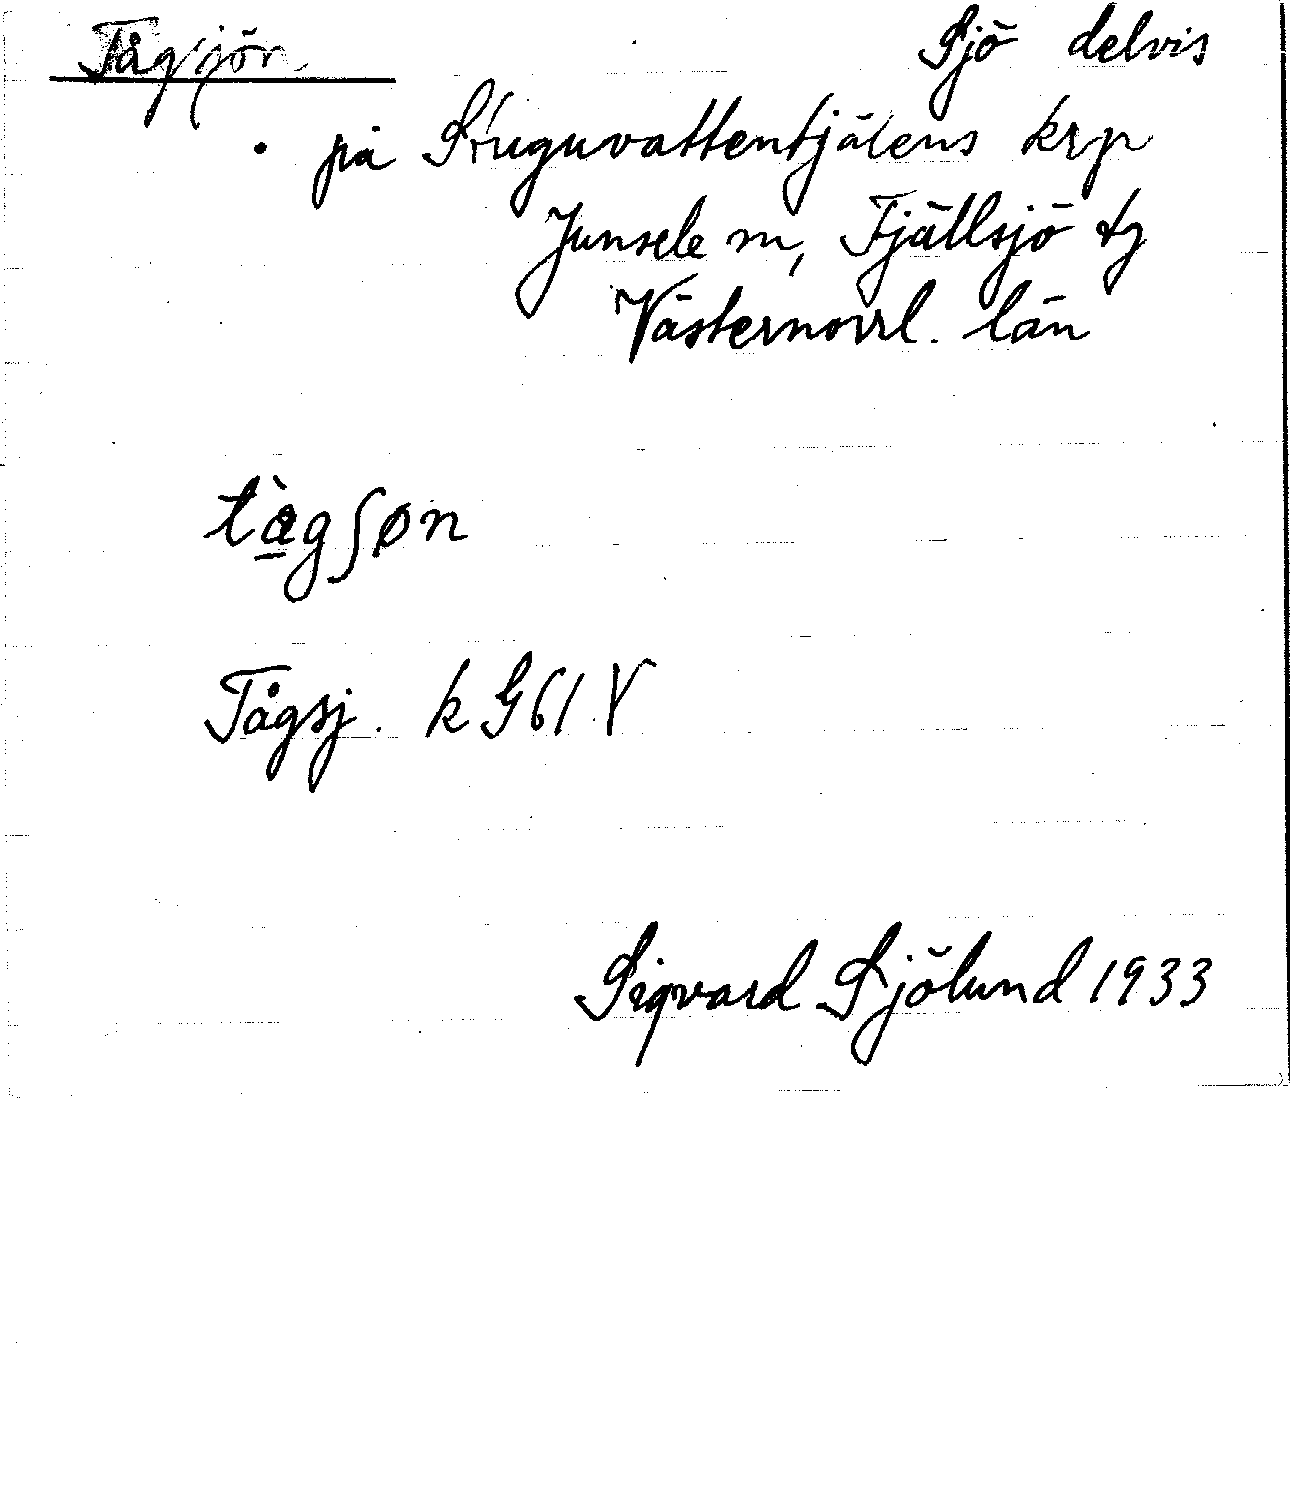 Tågsjön Sjö delvis
på Stuguvattentjälens krp
Junsele sn, Fjällsjö tg
Västernorrl. län
tàgʃøn
Tågsj. k G61 V
Sigvard Sjölund 1933